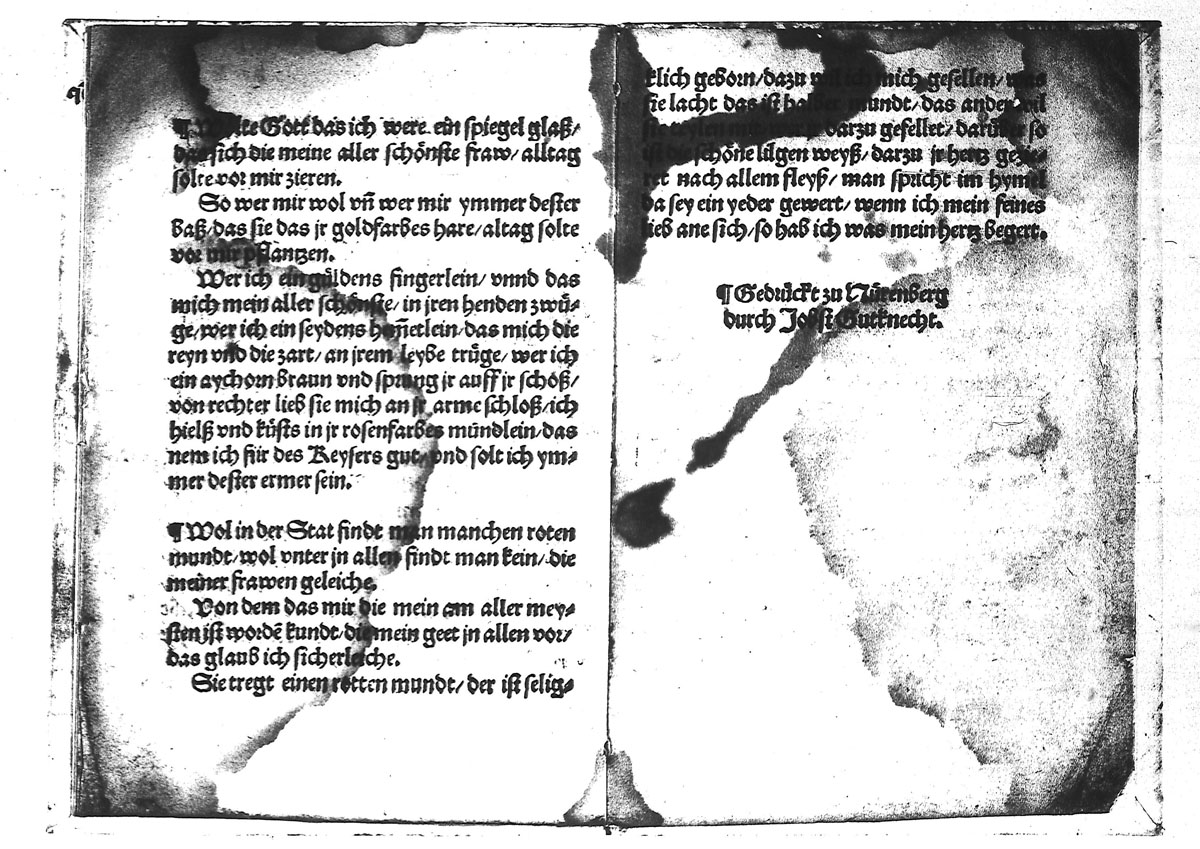 ¶ Wolte Gott das ich were ein spiegel glaß/
das sich die meine aller schönste fraw/ alltag
solte vor mir zieren.
So wer mir wol vñ wer mir ymmer dester
baß/ das sie das jr goldfarbes hare/ altag solte
vor mir pflantzen.
Wer ich ein güldens fingerlein/ vnnd das
mich mein aller schönste/ in jren henden zwü⸗
ge/ wer ich ein seydens hem̃etlein/ das mich die
reyn vnd die zart/ an jrem leybe trüge/ wer ich
ein aychorn braun vnd sprung jr auff jr schoß/
von rechter lieb sie mich an jr arme schloß/ ich
hielß vnd küsts in jr rosenfarbes mündlein/ das
nem ich für des Keysers gut/ vnd solt ich ym⸗
mer dester ermer sein.
¶ Wol in der Stat findt man manchen roten
mundt/ wol vnter jn allen findt man kein/ die
meiner frawen geleiche.
Von dem das mir die mein am aller mey⸗
sten ist wordẽ kundt/ die mein geet jn allen vor/
das glaub ich sicherleiche.
Sie tregt einen rotten mundt/ der ist selig⸗
klich geborn/ dazu wil ich mich gesellen/
sie lacht das ist halber mundt/ das ander wil
sie teylen mit/ darzu gesellet/ darüber so
ist die schöne lilgen weyß/ darzu jr hertz gezie⸗
ret nach allem fleyß/ man spricht im hymel
da sey ein yeder gewert/ wenn ich mein feines
lieb ane sich/ so hab ich was mein hertz begert.
¶ Gedrückt zu Nürenberg
durch Jobst Gutknecht.